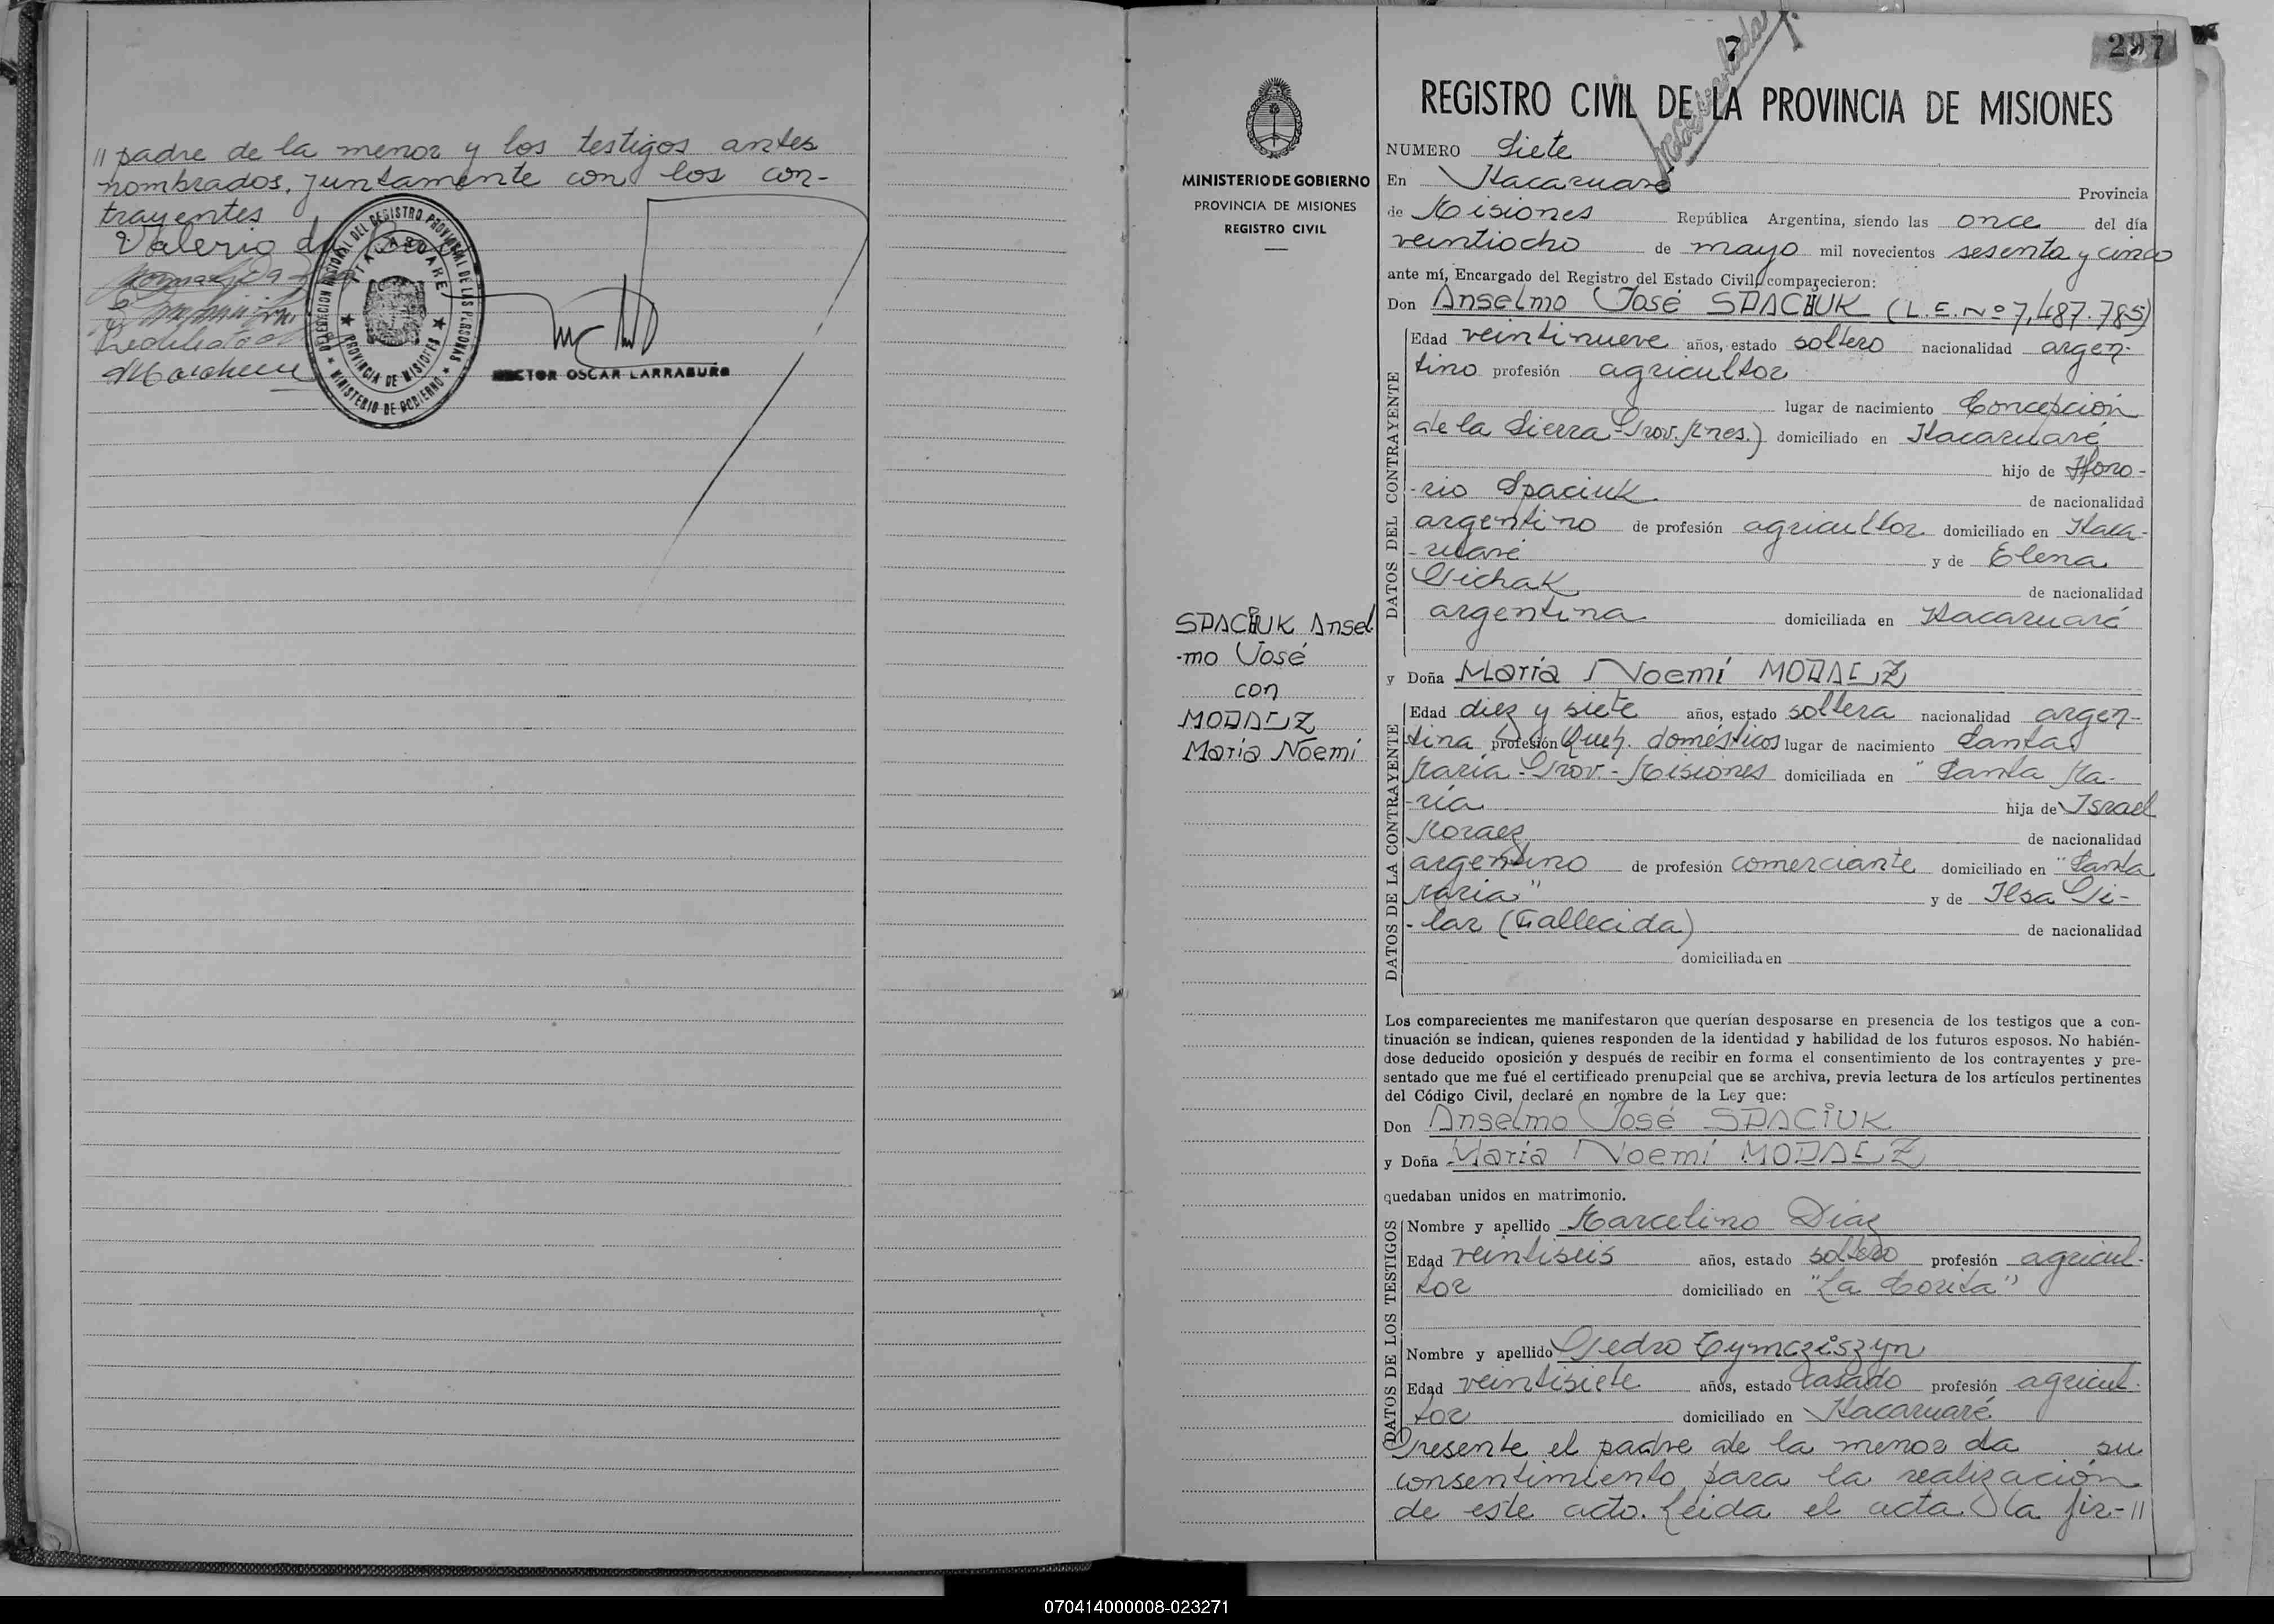 〃 padre de la menor y los testigos antes
nombrados, juntamente con los con-
trayentes
Valerio
DIRECCION NACIONAL DEL REGISTRO PROVINCIAL DE LAS PERSONAS
ITACARUARE
PROVINCIA DE MISIONES
MINISTERIO DE GOBIERNO
HECTOR OSCAR LARRABURO
MINISTERIO DE GOBIERNO
PROVINCIA DE MISIONES
REGISTRO CIVIL
SPACIUK Ansel
-mo José
con
MORAEZ
María Noemí
7
297
REGISTRO CIVIL DE LA PROVINCIA DE MISIONES
NUMERO Siete
En Itacaruaré Provincia
de Misiones República Argentina, siendo las once del día
veintiocho de mayo mil novecientos sesenta y cinco
ante mí, Encargado del Registro del Estado Civil, comparecieron:
Don Anselmo José SPACIUK (L.E. Nº 7,487.785)
DATOS DEL CONTRAYENTE
Edad veintinueve años, estado soltero nacionalidad argen-
tino profesión agricultor
lugar de nacimiento Concepción
de la Sierra-Prov. Mnes.) domiciliado en Itacaruaré
hijo de Hono-
-rio Spaciuk de nacionalidad
argentino de profesión agricultor domiciliado en Itaca-
-ruaré y de Elena
Pichak de nacionalidad
argentina domiciliada en Itacaruaré
y Doña María Noemí MORAEZ
DATOS DE LA CONTRAYENTE
Edad diez y siete años, estado soltera nacionalidad argen-
tina profesión Queh. domésticos lugar de nacimiento Santa
María-Prov.-Misiones domiciliada en "Santa Ma-
-ría hija de Israel
Moraez de nacionalidad
argentino de profesión comerciante domiciliado en "Santa
María" y de Ilsa Pi-
-lar (Fallecida) de nacionalidad
domiciliada en
Los comparecientes me manifestaron que querían desposarse en presencia de los testigos que a con-
tinuación se indican, quienes responden de la identidad y habilidad de los futuros esposos. No habién-
dose deducido oposición y después de recibir en forma el consentimiento de los contrayentes y pre-
sentado que me fué el certificado prenupcial que se archiva, previa lectura de los artículos pertinentes
del Código Civil, declaré en nombre de la Ley que:
Don Anselmo José SPACIUK
y Doña María Noemí MORAEZ
quedaban unidos en matrimonio.
DATOS DE LOS TESTIGOS
Nombre y apellido Marcelino Diaz
Edad veintiseis años, estado soltero profesión agricul-
tor domiciliado en "La Corita"
Nombre y apellido Pedro Cymcziszyn
Edad veintisiete años, estado casado profesión agricul-
tor domiciliado en Itacaruaré
Presente el padre de la menor da su
consentimiento para la realización
de este acto. Leida el acta la fir-〃
070414000008-023271